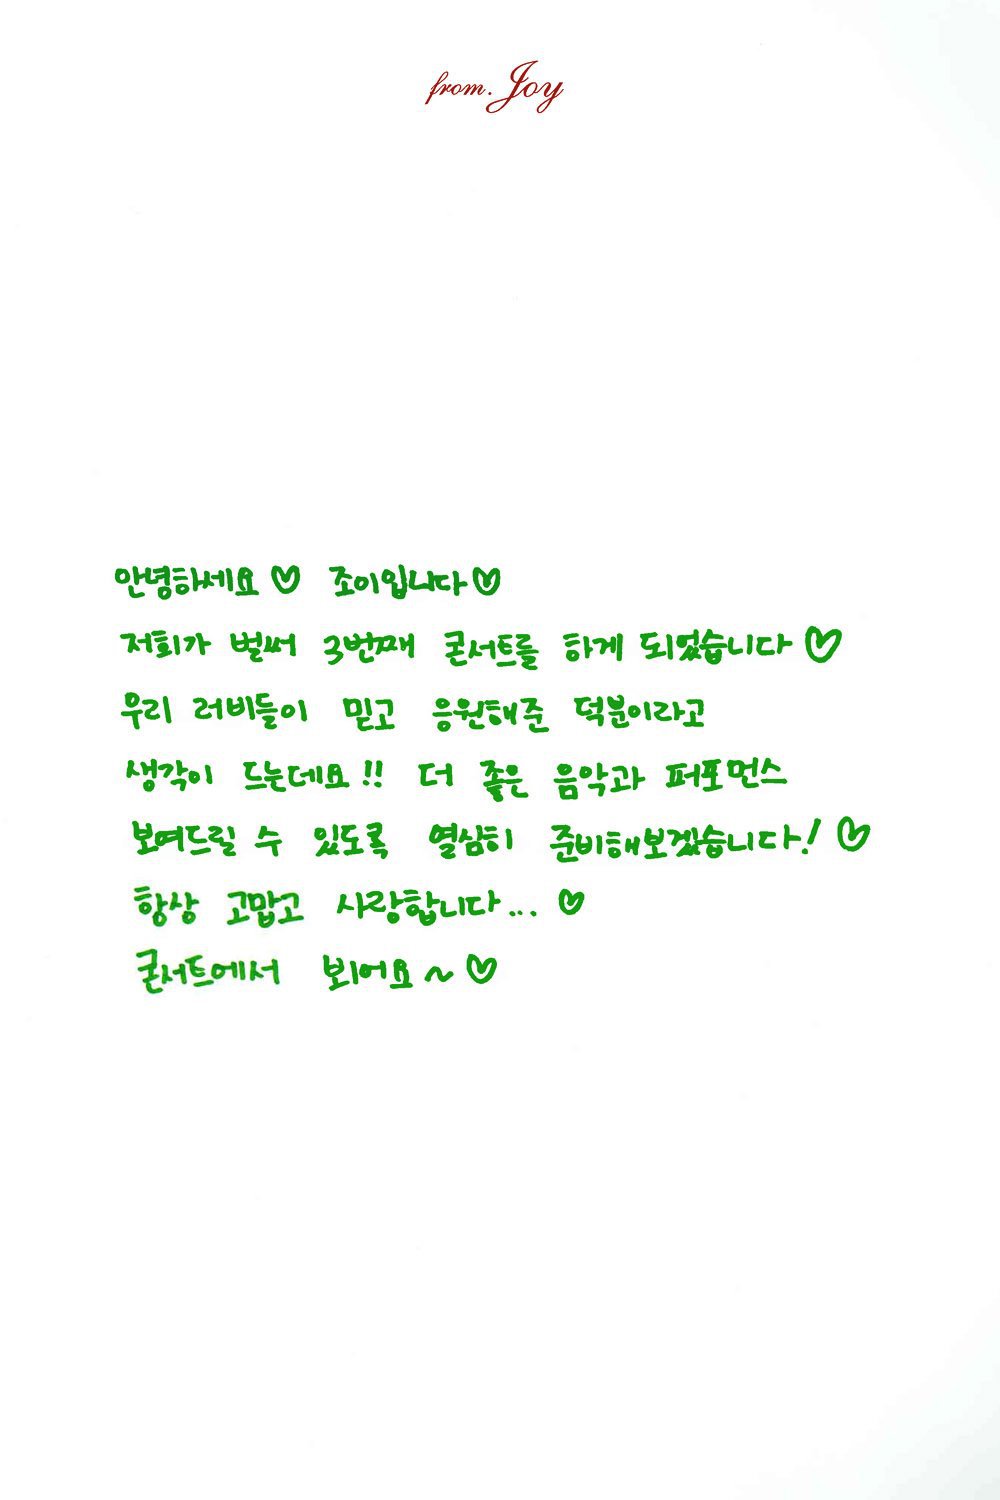 from. Joy
안녕하세요♡ 조이입니다♡
저희가 벌써 3번째 콘서트를 하게 되었습니다♡
우리 러비들이 믿고 응원해준 덕분이라고
생각이 드는데요!! 더 좋은 음악과 퍼포먼스
보여드릴 수 있도록 열심히 준비해보겠습니다! ♡
항상 고맙고 사랑합니다... ♡
콘서트에서 뵈어요~♡